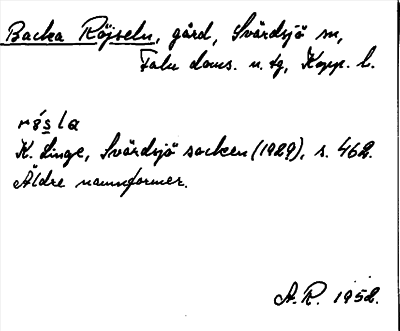 Backa Röjseln, gård, Svärdsjö sn,
Falu doms. n. tg, Kopp. l.
rö́sla
K. Linge, Svärdsjö socken (1929), s. 462.
Äldre namnformer.
A.R. 1952.